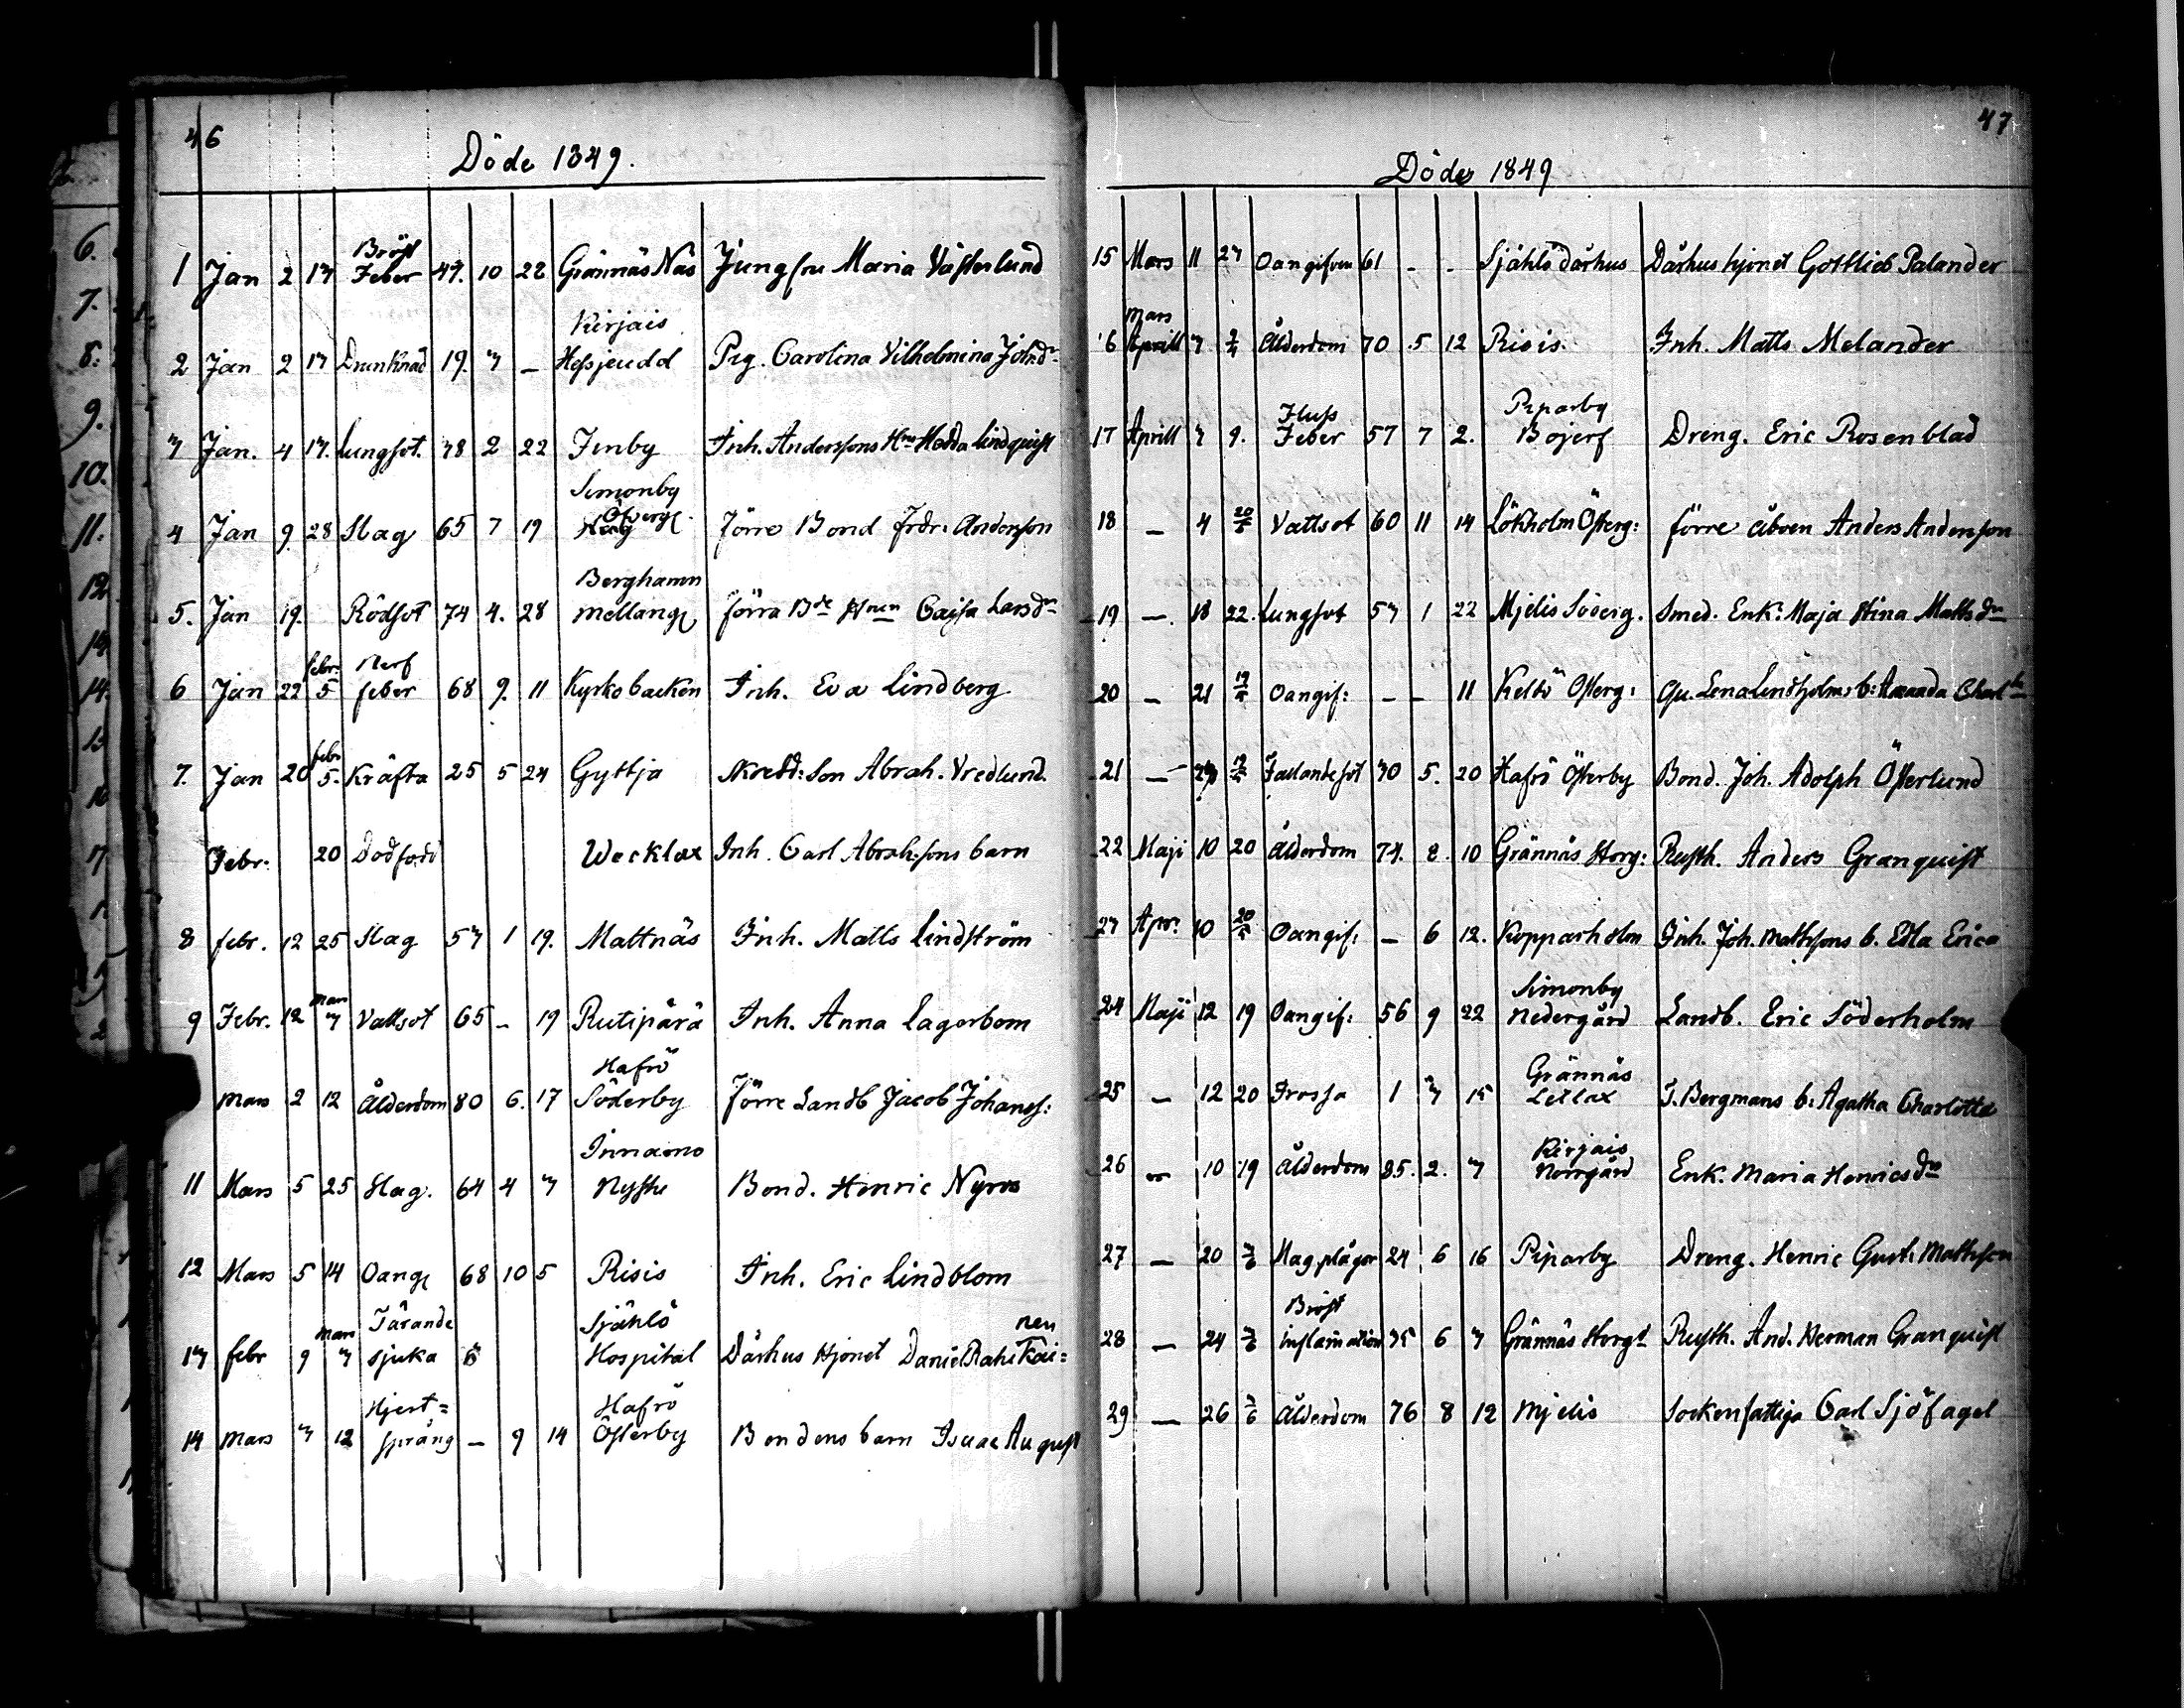 46
Döde 1849.
Bröst
1 Jan 2 13 Feber 47. 10 22 Grännäs Näs Jungfru Maria Västerlund
Kirjais
2 Jan 2 13 Drunknad 19. 3 – Hessjeudd Pig. Carolina Vilhelmina Johnsdr
3 Jan. 4 13. Lungsot. 38 2 22 Finby Inh. Anderssons Hru Hedda Lindquist
Simonby
Öfverg
4 Jan 9. 28 Slag 65 7 19 Förre Bond Fredr: Andersson
Berghamn
5. Jan 19. Rödsot 74 4. 28 mellang förra Bde Hrun Cajsa Larsdr
febr: Nerf
6 Jan 22 5 feber 68 9. 11 Kyrkobacken Inh. Eva Lindberg
febr
7. Jan 20 5. Kräfta 25 5 24 Gyttja Skredd: Son Abrah. Vredlund.
Febr: 20 Dödfödt Wecklax Inh. Carl Abrah:sons barn
8 febr. 12 25 Slag 53 1 19. Mattnäs Inh. Matts Lindström
mars
9 Febr. 12 3 Vattsot 65 – 19 Rutipärä Inh. Anna Lagerbom
Hafrö
mars 2 12 Ålderdom 80 6. 17 Söderby Förre Landb Jacob Johanss:
Innamo
11 Mars 5 25 Slag. 64 4 3 Nystu Bond. Henric Nyros
12 Mars 5 14 Oang 68 10 5 Risis Inh. Eric Lindblom
mars Tärande Själhlö nen
13 febr 9 3 sjuka Hospital Dårhus Hjonet Daniel Rahi Kai=
Hjert= Hafrö
14 mars 3 12 språng – 9 14 Österby Bondens barn Isaac August
47
Döde 1849
15 Mars 11 23 Oangifven 61 - - Sjählö dårhus Dårhus hjonet Gottlieb Palander
Mars
16 Aprill 3 2/4 Ålderdom 70 5 12 Risis. Inh. Matts Melander
Fluss Piparby
17 Aprill 3 9. Feber 57 7 2. Bojers Dreng. Eric Rosenblad
18 – 4 20/5 Vattsot 60 11 14 Lökholm Österg: förre åboen Anders Andersson
19 –. 18 22. Lungsot 53 1 22 Mjelis Söderg. Smed. Enk: Maja Stina Mattsdr
20 – 21 Oangif: – – 11 Keltö Österg: Qu. Lena Lindholms b: Amanda Charl
21 – Fallandesot 30 5. 20 Hafrö Österby Bond. Joh. Adolph Österlund
22 Maji 10 20 Ålderdom 74. 8. 10 Grännäs Storg: Rusth. Anders Granquist
23 Apr: 10 Oangif: – 6 12. Kopparholm Inh. Joh. Mathssons b. Edla Erica
Simonby
24 Maji 12 19 Oangif: 56 9 22 Nedergård Landb. Eric Söderholm
Grännäs
25 – 12 20 Frossa 1 3 15 Lellax J. Bergmans b: Agatha Charlotta
Kirjais
26 – 10 19 Ålderdom 85. 2. 3 Norrgård Enk. Maria Henricsdr
27 – 20 3/6 Magplågor 24 6 16 Piparby Dreng. Henric Gust: Mathsson
Bröst
28 – 24 3/6 inflamation 35 6 3 Grännäs Storgd Rusth. And. Herman Granquist
29 – 26 3/6 Ålderdom 76 8 12 Mjelis Sockenfattiga Carl Sjöfagel